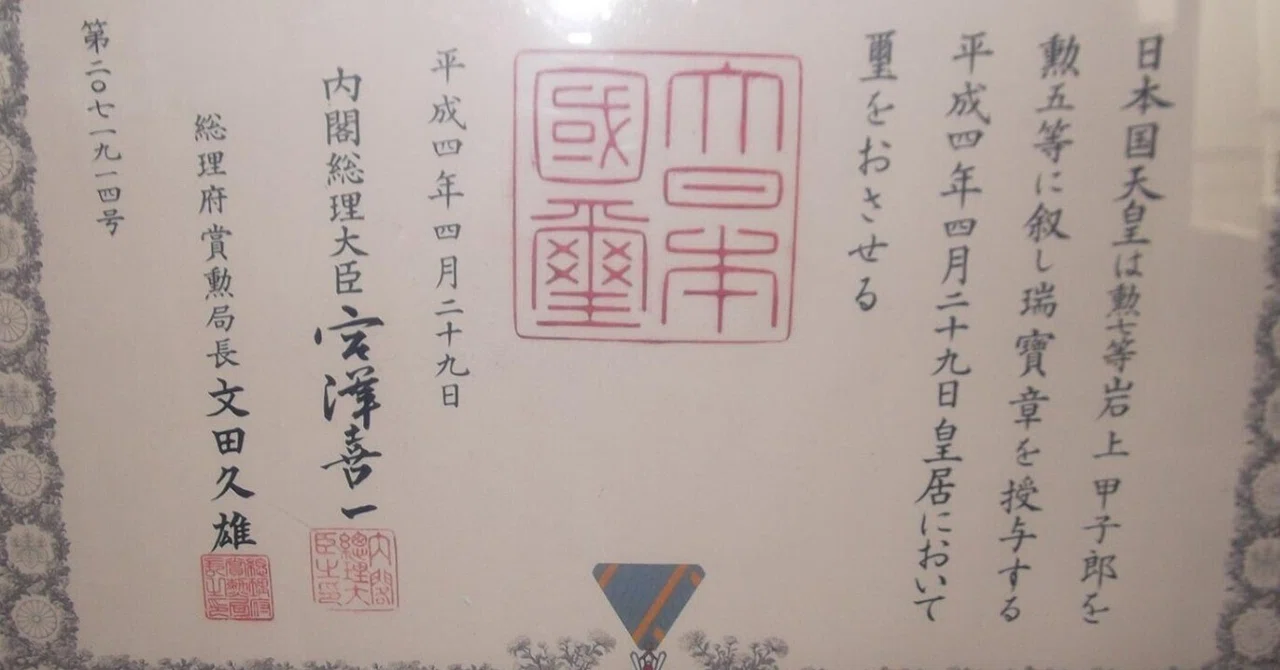 日本国天皇は勲七等岩上甲子郎を
勲五等に叙し瑞寶章を授与する
平成四年四月二十九日皇居において
璽をおさせる
大日本
國璽
平成四年四月二十九日
内閣総理大臣宮澤喜一
内閣
總理大
臣之印
総理府賞勲局長文田久雄
第二〇七一九一四号